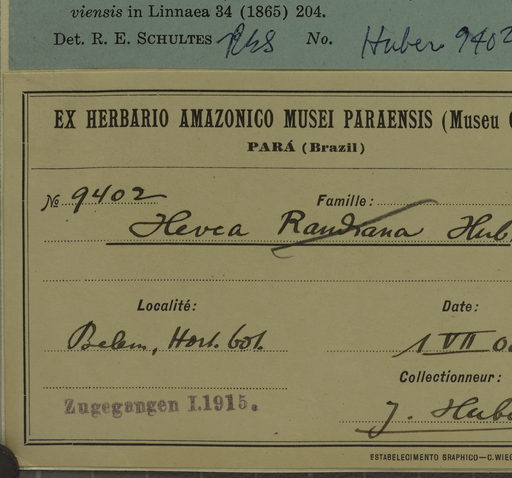 viensis in Linnaea 34 (1865) 204.
Det. R. E. SCHULTES RES No. Huber 9402
EX HERBARIO AMAZONICO MUSEI PARAENSIS (Museu
PARÁ (Brazil)
№ 9402 Famille:
Hevea Randiana Hub
Localité: Date:
Belem, Hort. bot. 1 VII
Collectionneur:
Zugegangen I.1915. J. Hube
ESTABELECIMENTO GRAPHICO—C. WIEG